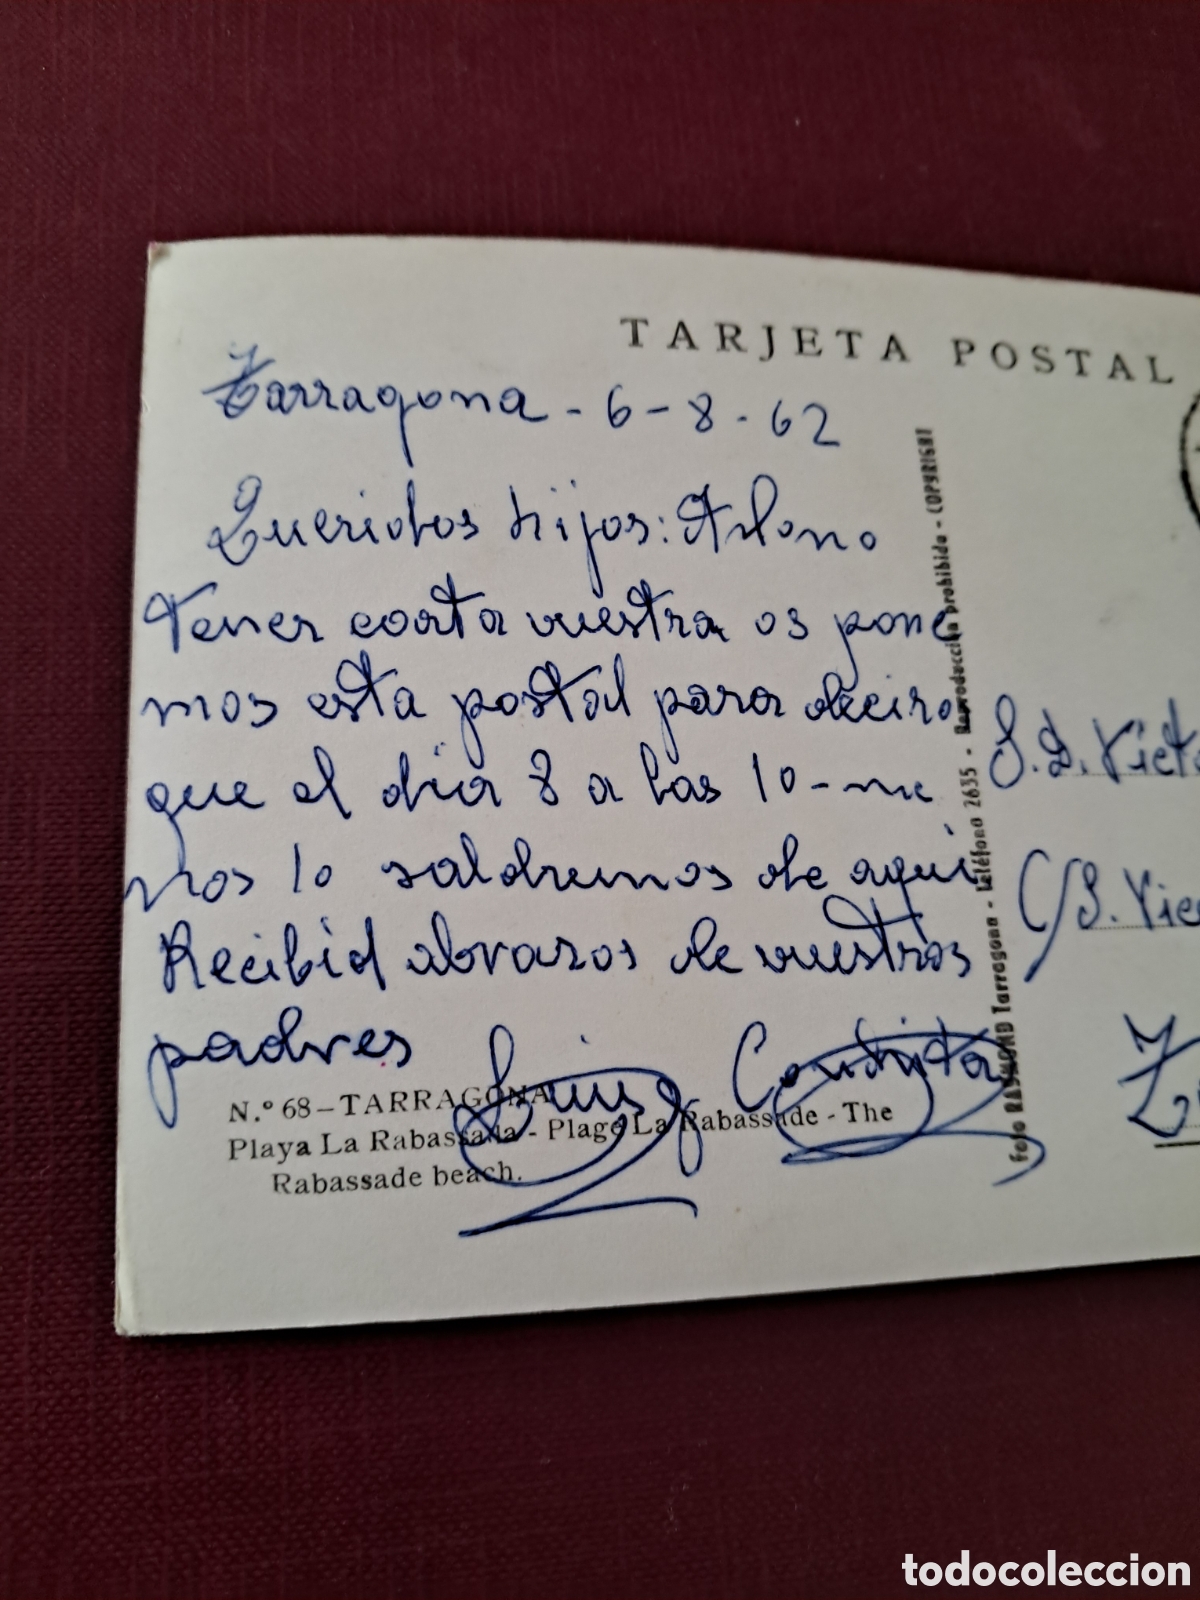 TARJETA POSTAL
Tarragona - 6-8-62
Queridos hijos: Al no
tener carta vuestra os pone
mos esta postal para deciros
que el dia 8 a las 10 - me
nos 10 saldremos de aqui
Recibid abrazos de vuestros
padres Luis y Conchita
N.º 68 – TARRAGONA
Playa La Rabassada - Plage La Rabassade - The
Rabassade beach.
Foto RAYMOND Tarragona - teléfono 2635 - Reproducción prohibida - COPYRIGHT
S. D. Vict
C/S. Vice
todocoleccion